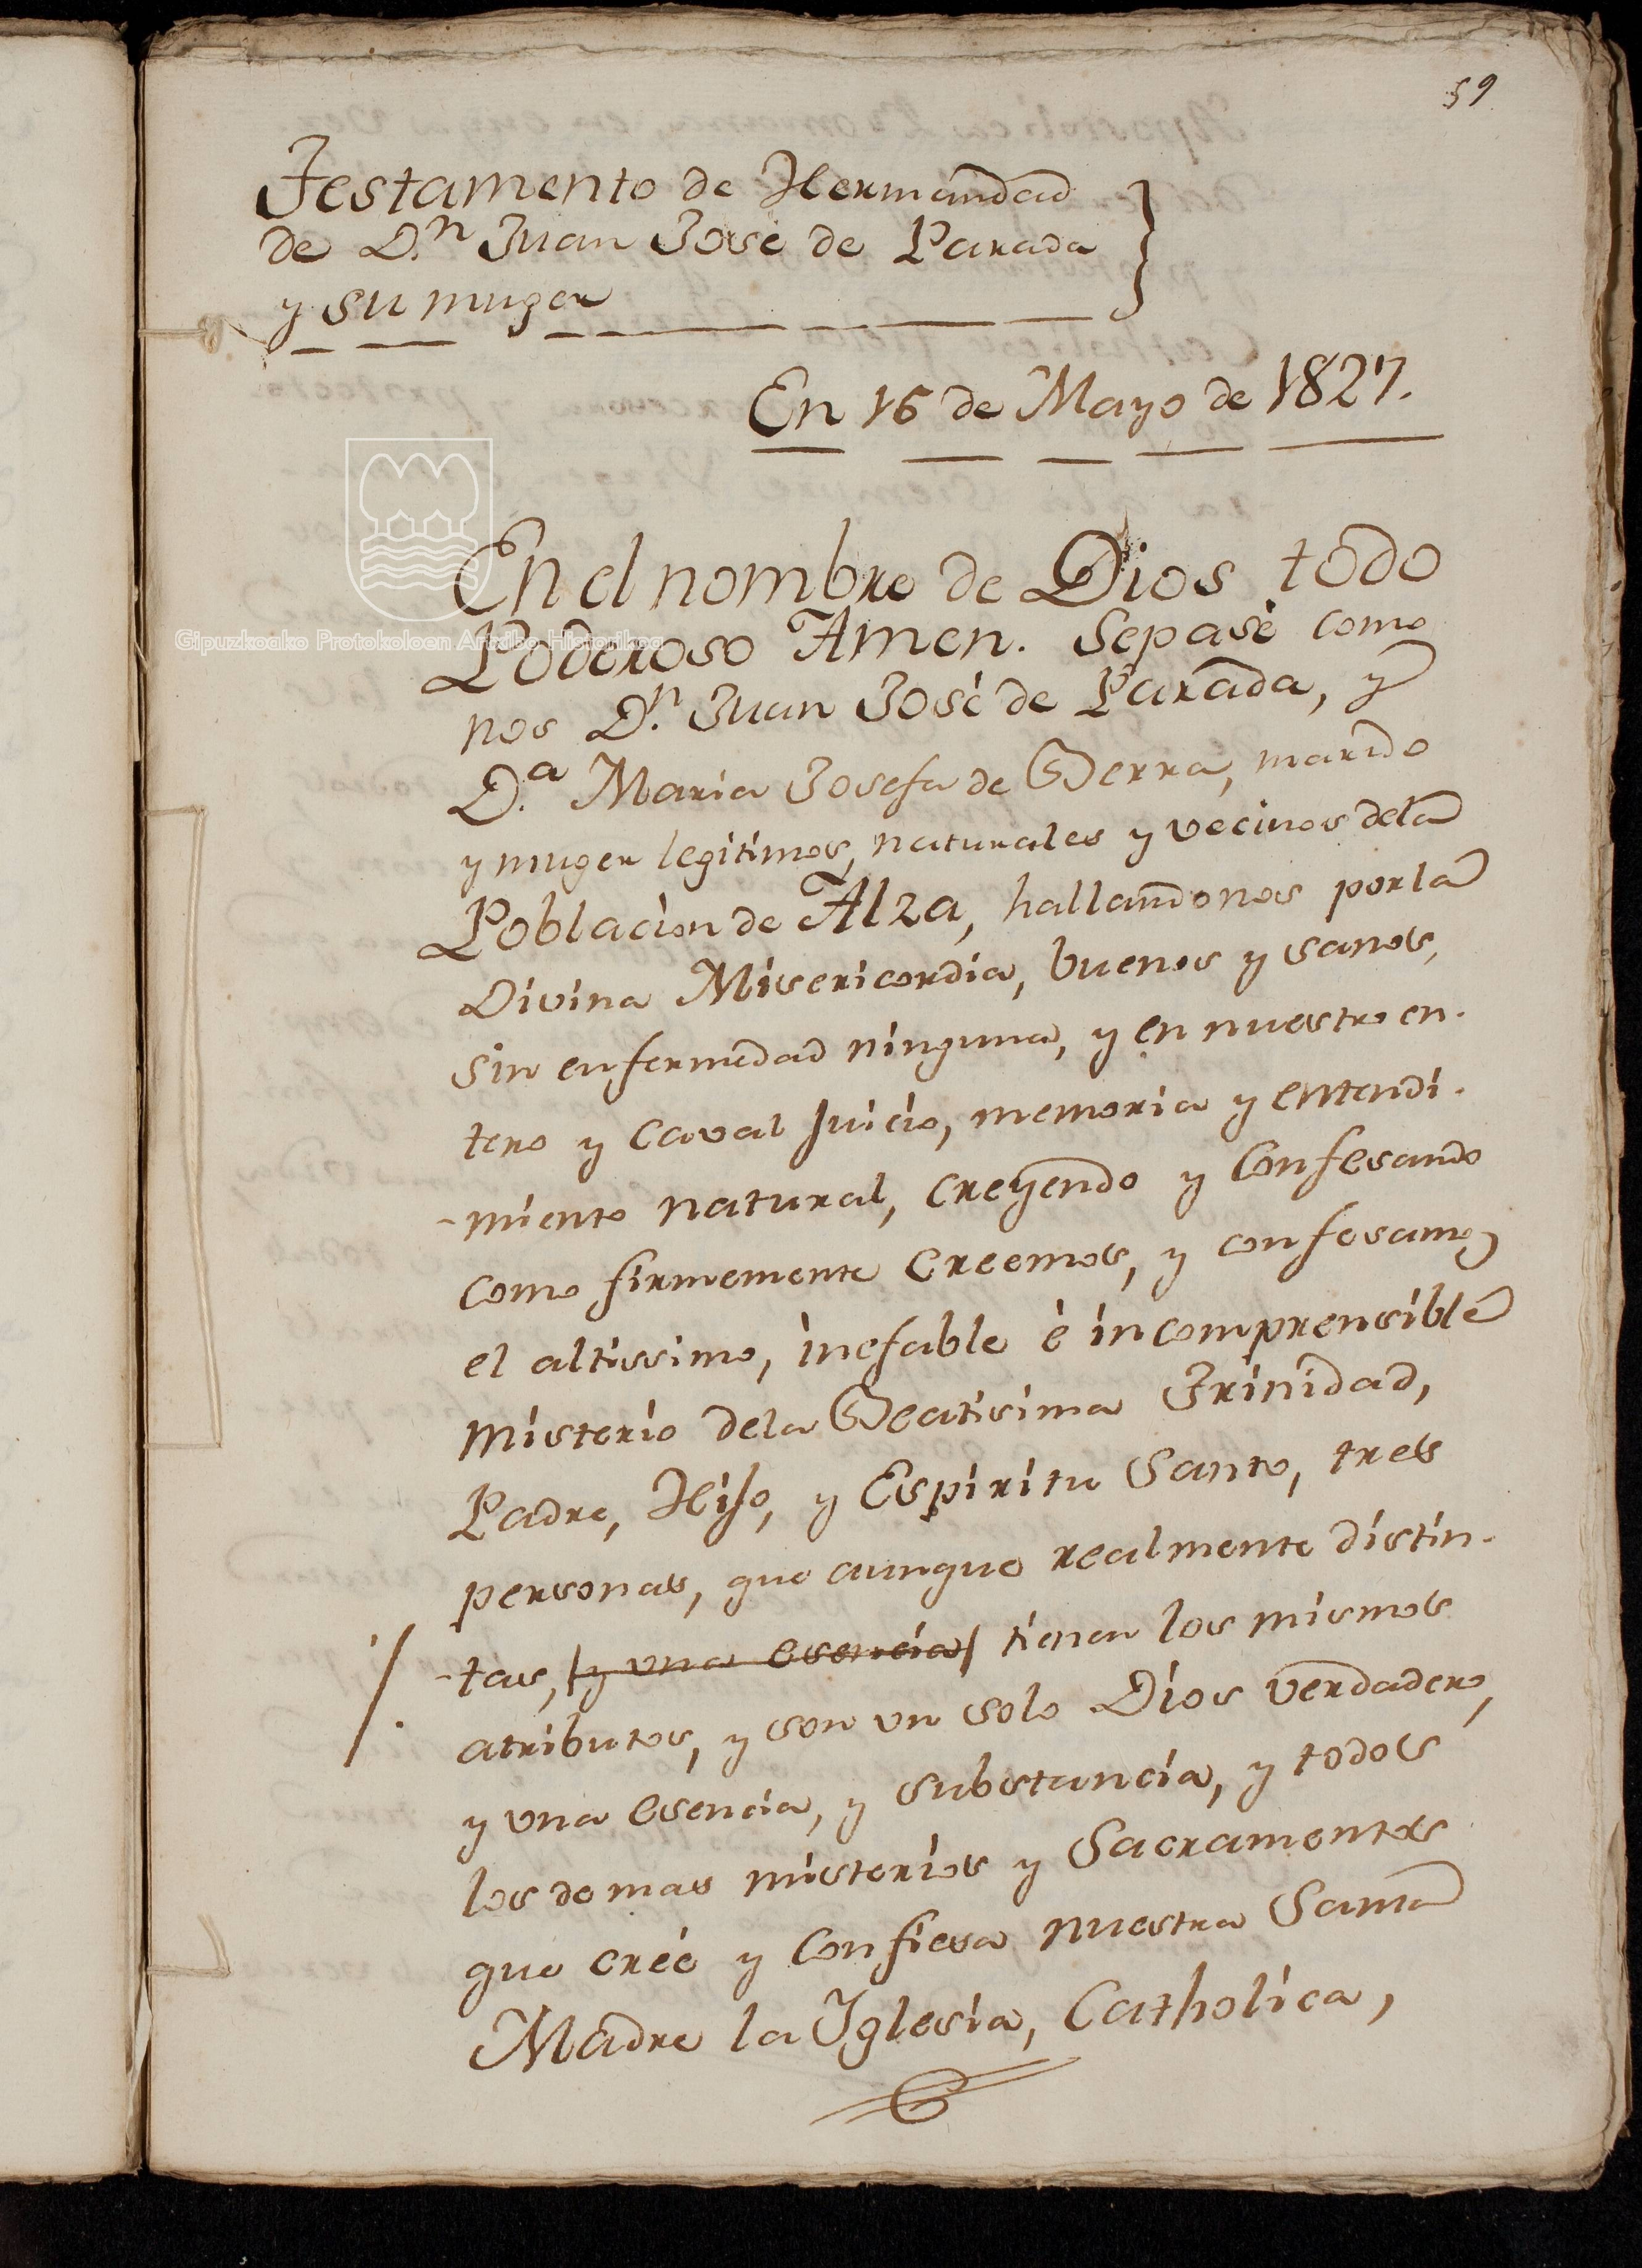 59
Testamento de Hermandad
de D.n Juan José de Parada
y su muger
En 16 de Mayo de 1827.
En el nombre de Dios todo
Poderoso Amen. Sepase como
Gipuzkoako Protokoloen Artxibo Historikoa
nos D.n Juan José de Parada, y
D.a Maria Josefa de Berra, marido
y muger legitimos, naturales y vecinos dela
Poblacion de Alza, hallandonos por la
Divina Misericordia, buenos y sanos,
sin enfermedad ninguna, y en nuestro en-
tero y caval Juicio, memoria y entendi-
-miento natural, creyendo y confesando
como firmemente creemos, y confesamos
el altissimo, inefable è incomprensible
misterio dela Beatisima Trinidad,
Padre, Hijo, y Espiritu Santo, tres
personas, que aunque realmente distin-
-tas, y una esencia tienen los mismos
atributos, y son un solo Dios verdadero,
y una esencia, y substancia, y todos
los demas misterios y Sacramentos
que crée y confiesa nuestra Santa
Madre la Iglesia, Catholica,